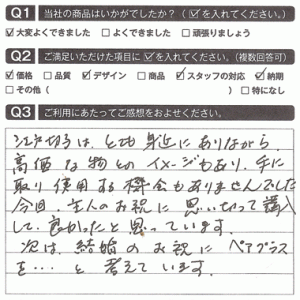 Q1 当社の商品はいかがでしたか？（☑を入れてください。）
☑大変よくできました □よくできました □頑張りましょう
Q2 ご満足いただけた項目に☑を入れてください。（複数回答可）
☑価格 □品質 ☑デザイン □商品 ☑スタッフの対応 ☑納期
□その他（ ） □特になし
Q3 ご利用にあたってご感想をおよせください。
江戸切子は、とても身近にありながら
高価な物とのイメージもあり、手に
取り使用する機会もありませんでした
今回、主人のお祝に思いきって購入
して良かったと思っています。
次は、結婚のお祝にペアグラス
を…と考えています。